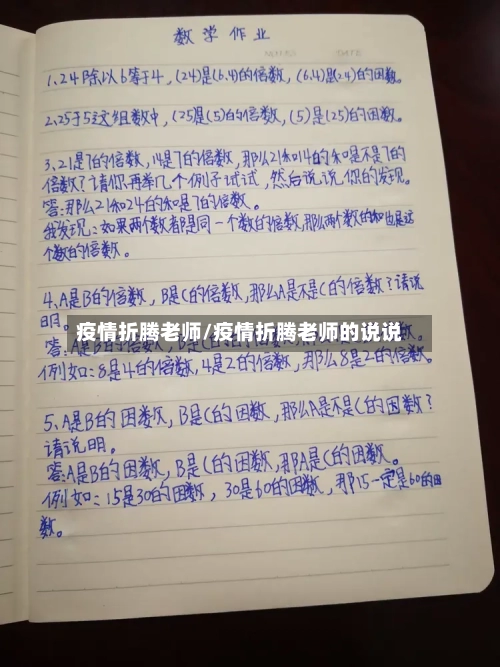 数学作业
1、24除以6等于4，(24)是(6.4)的倍数，(6.4)是(24)的因数。
2、25于5这组数中，(25是(5)的倍数，(5)是(25)的因数。
3、21是7的倍数，14是7的倍数，那么21和14的和是不是7的
倍数？请你再举几个例子试试，然后说说你的发现。
答：那么21和24的和是7的倍数。
我发现：如果两个数都是同一个数的倍数，那么两个数的和也是这
个数的倍数。
4、A是B的倍数，B是C的倍数，那么A是不是C的倍数？请说
明。
疫情折腾老师/疫情折腾老师的说说
答：A是B的倍数
例如：8是4的倍数，4是2的倍数，那么8是2的倍数。
5、A是B的因数，B是C的因数，那么A是不是C的因数？
请说明。
答：A是B的因数，B是C的因数，那A是C的因数。
例如：15是30的因数，30是60的因数，那15一定是60的因
数。